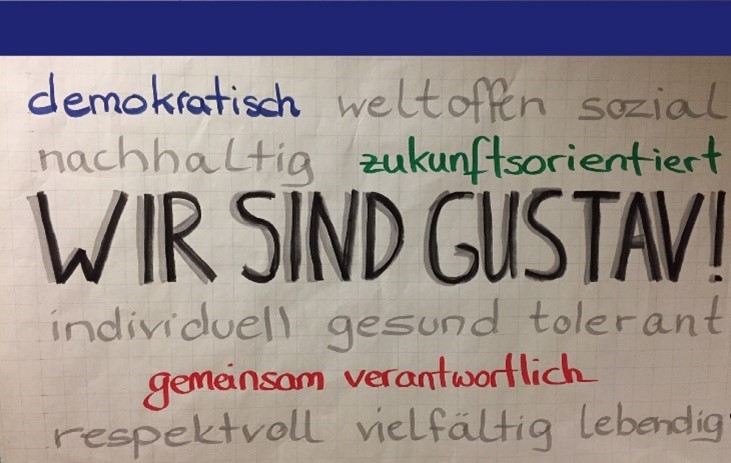 demokratisch weltoffen sozial
nachhaltig zukunftsorientiert
WIR SIND GUSTAV!
individuell gesund tolerant
gemeinsam verantwortlich
respektvoll vielfältig lebendig